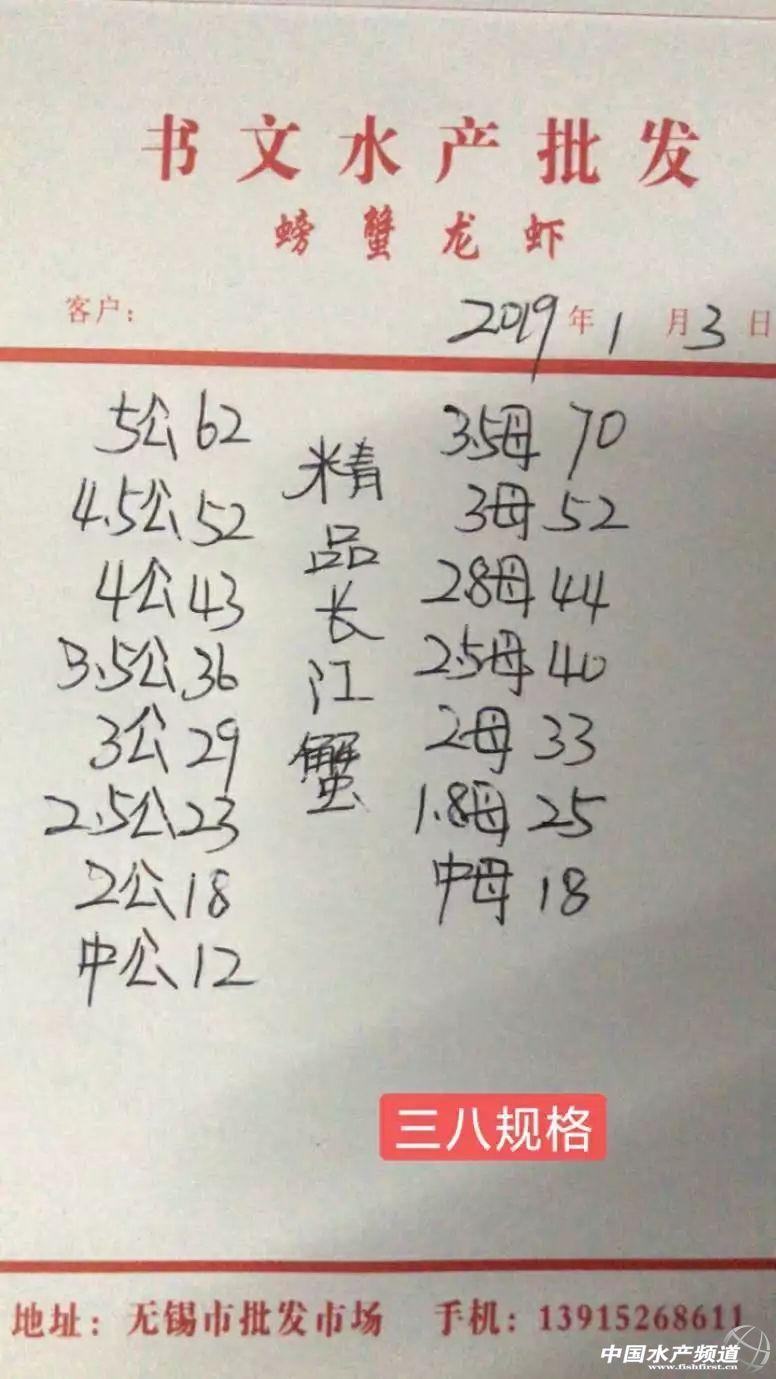 书文水产批发
螃蟹龙虾
客户： 2019年1月3日
5公62
4.5公52
4公43
3.5公36
3公29
2.5公23
2公18
中公12
精品长江蟹
3.5母 70
3母 52
2.8母 44
2.5母 40
2母 33
1.8母 25
中母 18
三八规格
地址：无锡市批发市场 手机：13915268611
中国水产频道
www.fishfirst.cn